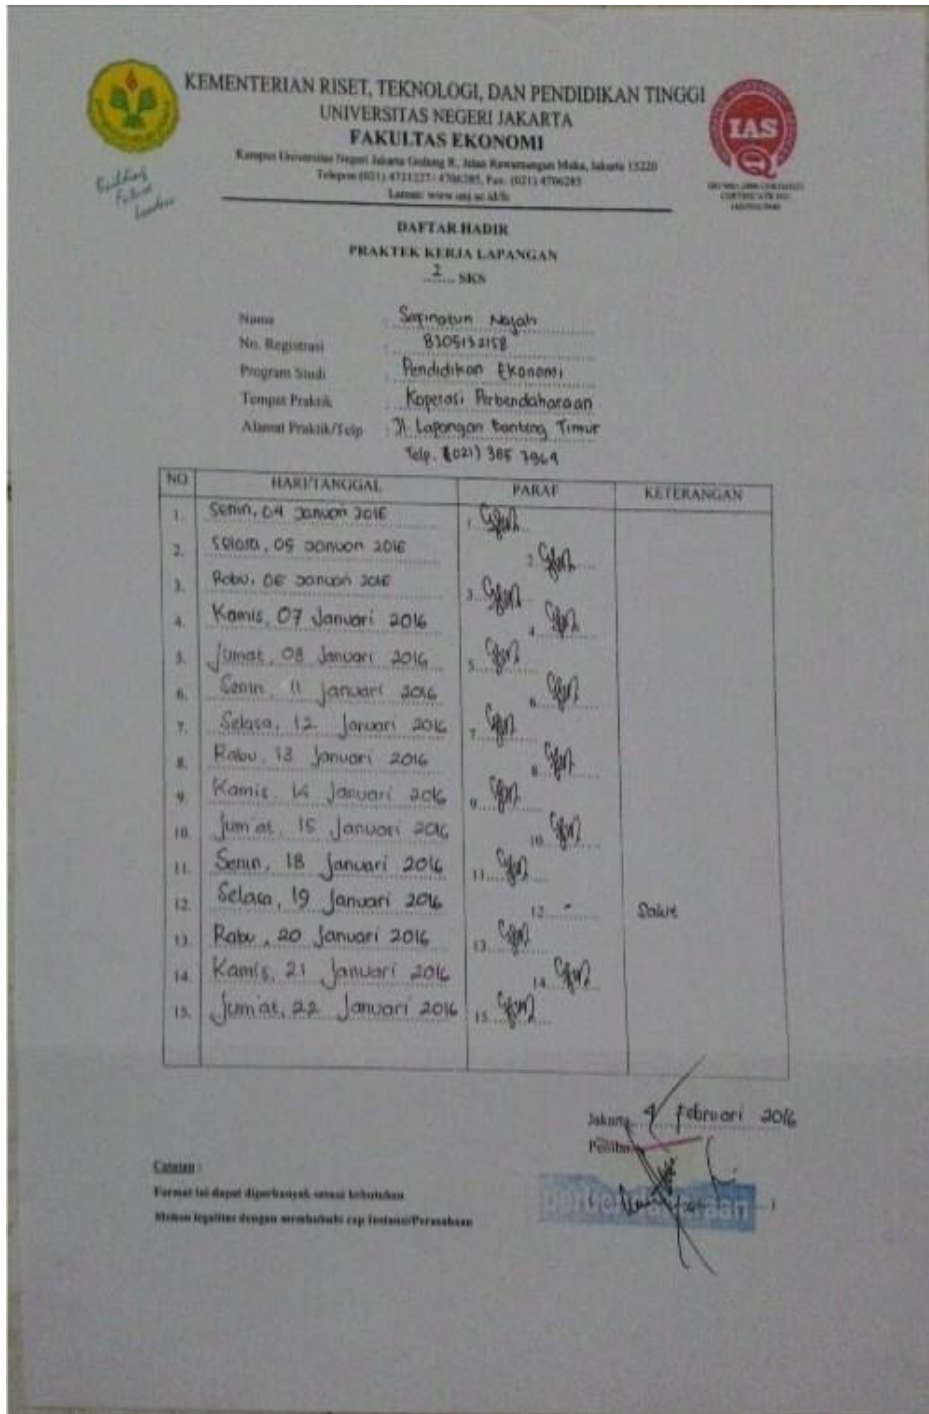 KEMENTERIAN RISET, TEKNOLOGI, DAN PENDIDIKAN TINGGI
UNIVERSITAS NEGERI JAKARTA
FAKULTAS EKONOMI
Kampus Universitas Negeri Jakarta Gedung R, Jalan Rawamangun Muka, Jakarta 13220
Telepon (021) 4721227/ 4706285, Fax: (021) 4706285
Laman: www.unj.ac.id/fe
Building
Future
Leaders
IAS
DAFTAR HADIR
PRAKTEK KERJA LAPANGAN
2 SKS
Nama : Sapinatun Najah
No. Registrasi : 8105132158
Program Studi : Pendidikan Ekonomi
Tempat Praktik : Koperasi Perbendaharaan
Alamat Praktik/Telp : Jl. Lapangan Banteng Timur
Telp. (021) 385 7964
NO HARI/TANGGAL PARAF KETERANGAN
1. Senin, 04 Januari 2016 1.
2. Selasa, 05 Januari 2016 2.
3. Rabu, 06 Januari 2016 3.
4. Kamis, 07 Januari 2016 4.
5. Jumat, 08 Januari 2016 5.
6. Senin, 11 Januari 2016 6.
7. Selasa, 12 Januari 2016 7.
8. Rabu, 13 Januari 2016 8.
9. Kamis, 14 Januari 2016 9.
10. Jum'at, 15 Januari 2016 10.
11. Senin, 18 Januari 2016 11.
12. Selasa, 19 Januari 2016 12. - Sakit
13. Rabu, 20 Januari 2016 13.
14. Kamis, 21 Januari 2016 14.
15. Jum'at, 22 Januari 2016 15.
Jakarta, 4 Februari 2016
Catatan :
Format ini dapat diperbanyak sesuai kebutuhan
Mohon legalitas dengan membubuhi cap Instansi/Perusahaan
perbendaharaan